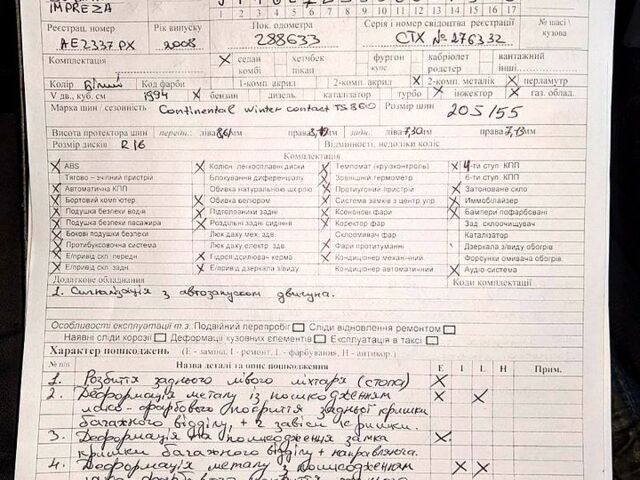 IMPREZA
1 2 3 4 5 6 7 8 9 10 11 12 13 14 15 16 17
Реєстрац. номер Рік випуску Пок. одометра Серія і номер свідоцтва реєстрації № шасі
кузова
AE2337PX 2008 288633 СТХ № 276332
Комплектація X седан хетчбек фургон кабріолет вантажний
комбі пікап купе родстер інші
Колір Білий Код фарби 1-комп. акрил 2-комп. акрил X 2-комп. металік X перламутр
V дв., куб. см 1994 X бензин дизель каталізатор турбо X інжектор X газ. облад.
Марка шин / сезонність Continental winter contact TS 860 Розмір шин 205/55
Висота протектора шин передн.: ліва мм права мм задн. ліва 7,30 мм права мм
Розмір дисків R16 Відмінності, недоліки коліс
Комплектація
X ABS X Колісн. легкосплавні диски X Темпомат (круїзконтроль) X 4-ти ступ. КПП
Тягово – зчіпний пристрій Блокування диференціалу X Зовнішній термометр 6-ти ступ. КПП
X Автоматична КПП Обивка натуральною шкірою X Протиугонні пристрій X Затоноване скло
X Бортовий комп'ютер X Обивка велюром X Система замків з центр. упр X Иммобілайзер
X Подушка безпеки водія X Підголовники задні X Ксенонові фари X Бампери пофарбовані
X Подушка безпеки пасажира X Роздільні задні сидіння X Коректор фар Зад. склоочищувач
X Бокові подушки безпеки Люк даху мех. здв. Склоомивач фар Каталізатор
X Протибуксовочна система Люк даху електр. здв. X Фари протитуманні Дзеркала з/виду обогрів
X Е/привід скл. передн. X Гідропідсилювач керма X Кондиціонер механічний Форсунки омивача обогрів
X Е/привід скл. задн. X Е/привід дзеркала з/виду Кондиціонер автоматичний X Аудіо-система
Додаткове обладнання Коди комплектації
1. Сигналізація з автозапуском двигуна.
Особливості експлуатації т.з. Подвійний перепробіг Сліди відновлення ремонтом
Наявні сліди корозії Деформації кузовних елементів Експлуатація в таксі
Характер пошкоджень (Е - заміна, І - ремонт, L - фарбування, Н - антикор.)
№ п/п Назва деталі та опис пошкодження E I L H Прим.
1. Розбиття заднього лівого ліхтаря (стопа) X
2. Деформація металу із пошкодженням X X
лако-фарбового покриття задньої кришки
багажного відділу, + 2 завіси кришки.
3. Деформація та пошкодження замка X
кришки багажного відділу + направляюча.
4. Деформація металу з пошкодженням X X